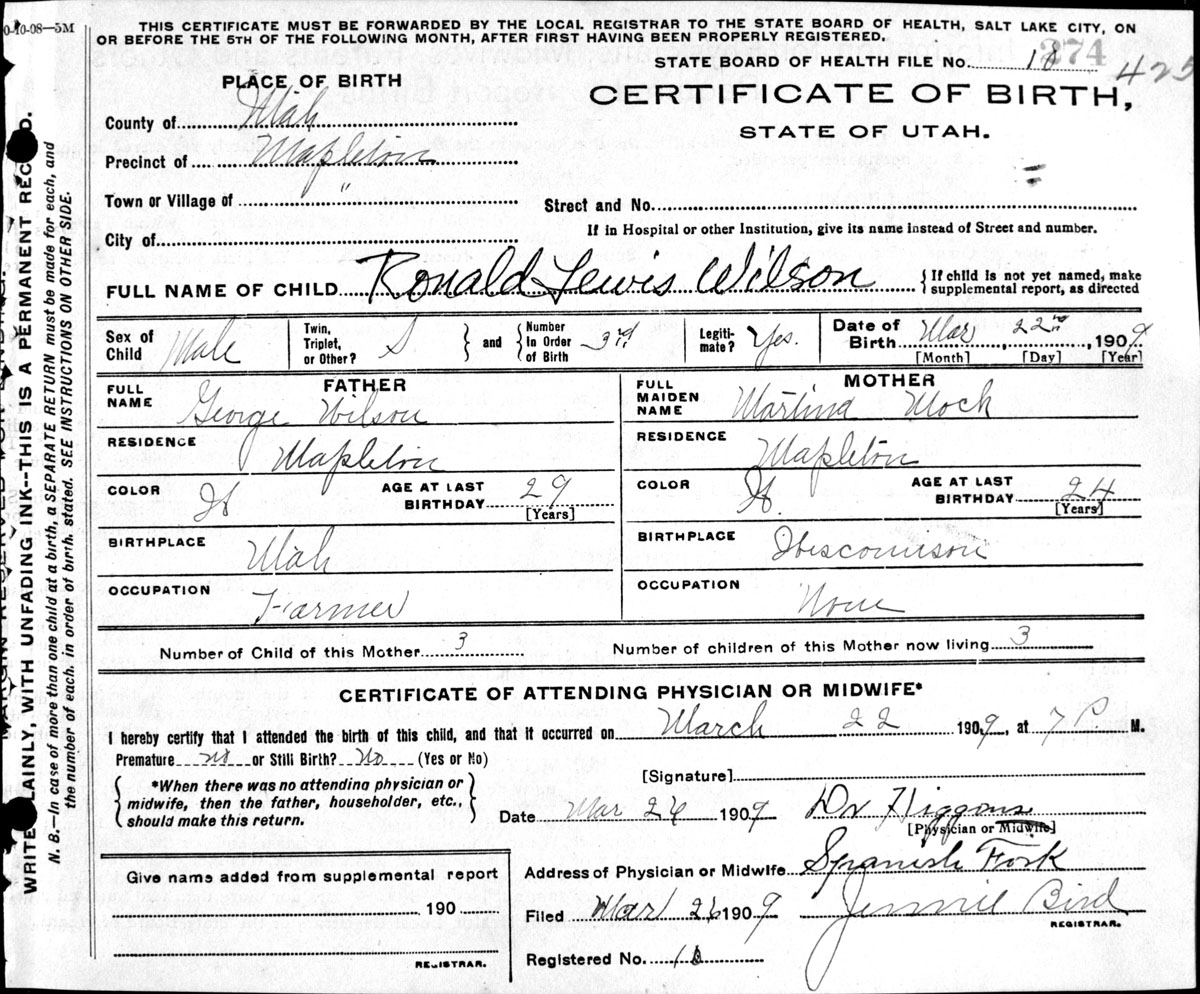 0-10-08—5M
THIS CERTIFICATE MUST BE FORWARDED BY THE LOCAL REGISTRAR TO THE STATE BOARD OF HEALTH, SALT LAKE CITY, ON
OR BEFORE THE 5TH OF THE FOLLOWING MONTH, AFTER FIRST HAVING BEEN PROPERLY REGISTERED.
STATE BOARD OF HEALTH FILE No. 18 274 425
PLACE OF BIRTH
CERTIFICATE OF BIRTH,
STATE OF UTAH.
County of Utah
Precinct of Mapleton
Town or Village of "
Street and No.
If in Hospital or other Institution, give its name instead of Street and number.
City of
FULL NAME OF CHILD Ronald Lewis Wilson { If child is not yet named, make supplemental report, as directed
Sex of Child Male Twin, Triplet, or Other? S } and { Number In Order of Birth 3rd Legiti-mate? Yes. Date of Birth Mar 22nd, 1909
[Month] [Day] [Year]
FATHER
FULL NAME George Wilson
RESIDENCE Mapleton
COLOR W AGE AT LAST BIRTHDAY 29 [Years]
BIRTHPLACE Utah
OCCUPATION Farmer
MOTHER
FULL MAIDEN NAME Martina Mock
RESIDENCE Mapleton
COLOR W. AGE AT LAST BIRTHDAY 24 [Years]
BIRTHPLACE Wiscomison
OCCUPATION None
Number of Child of this Mother 3 Number of children of this Mother now living 3
CERTIFICATE OF ATTENDING PHYSICIAN OR MIDWIFE*
I hereby certify that I attended the birth of this child, and that it occurred on March 22 1909, at 7 P M.
Premature no or Still Birth? No (Yes or No)
{ *When there was no attending physician or midwife, then the father, householder, etc., should make this return. }
[Signature]
Date Mar 26 1909 Dr Higgons
[Physician or Midwife]
Address of Physician or Midwife Spanish Fork
Filed Mar 26 1909 Jennie Bird
REGISTRAR.
Registered No. 10
Give name added from supplemental report
190
REGISTRAR.
WRITE PLAINLY, WITH UNFADING INK--THIS IS A PERMANENT RECORD.
N. B.—In case of more than one child at a birth, a SEPARATE RETURN must be made for each, and
the number of each, in order of birth, stated. SEE INSTRUCTIONS ON OTHER SIDE.